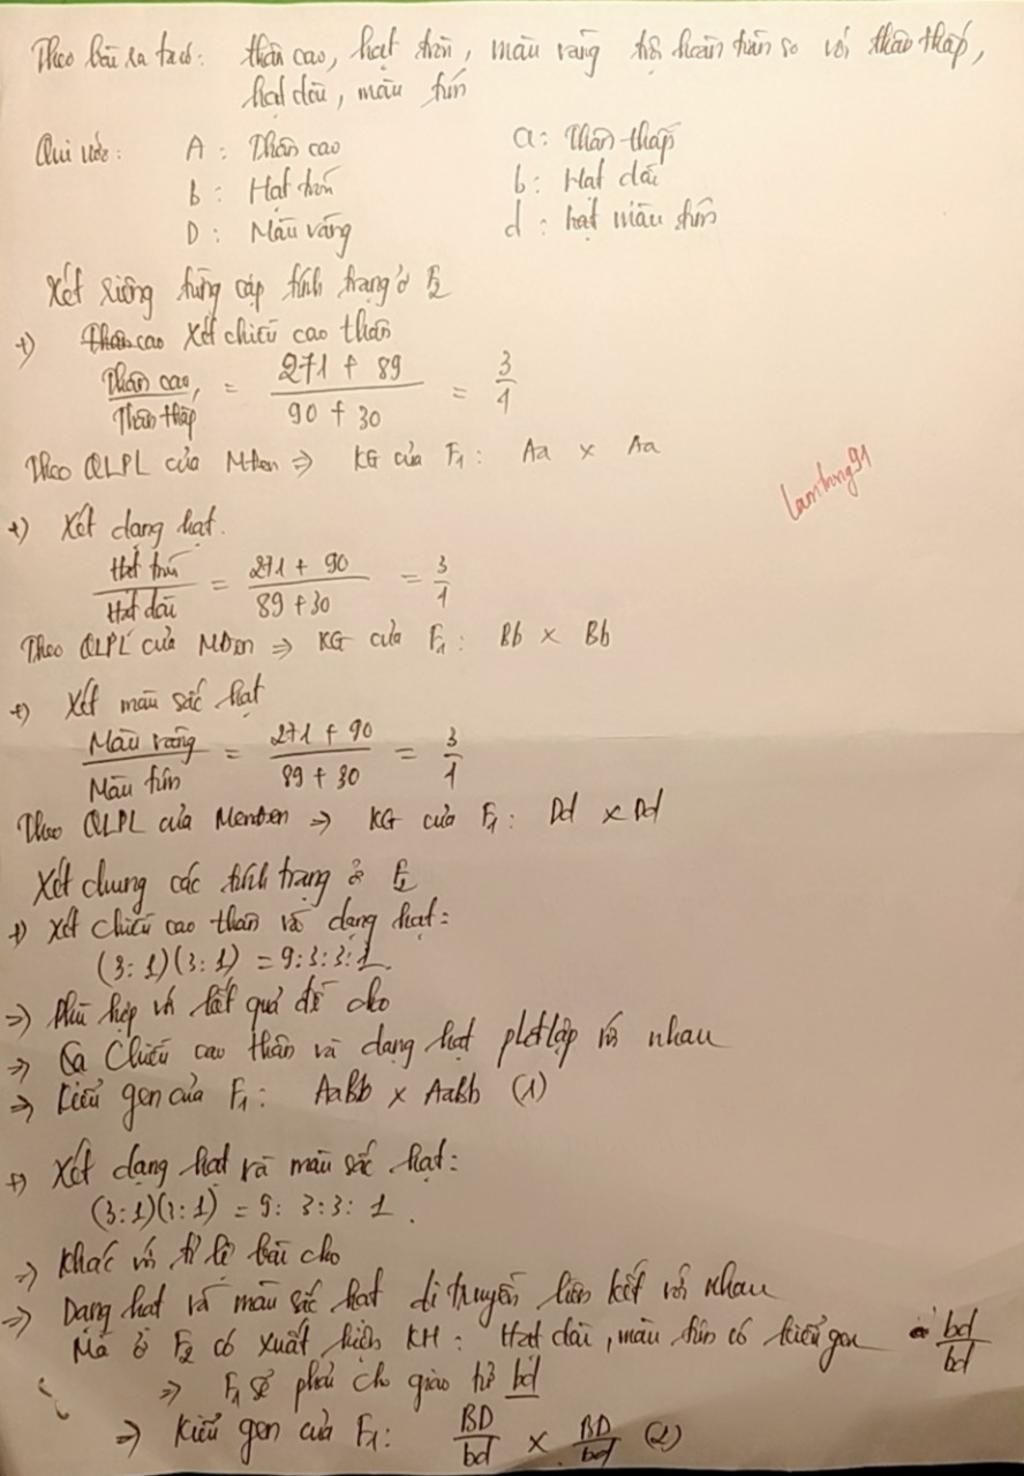 Theo bài ra ta có: thân cao, hạt tròn, màu vàng trội hoàn toàn so với thân thấp,
hạt dài, màu tím
Qui ước: A : Thân cao a: Thân thấp
B : Hạt tròn b: Hạt dài
D : Màu vàng d : hạt màu tím
Xét riêng từng cặp tính trạng ở F2
+) Xét chiều cao thân
Thân cao / Thân thấp = (271 + 89) / (90 + 30) = 3/1
Theo QLPL của MĐen => KG của F1: Aa x Aa
Lamtrong91
+) Xét dạng hạt.
Hạt tròn / Hạt dài = (271 + 90) / (89 + 30) = 3/1
Theo QLPL của MĐen => KG của F1: Bb x Bb
+) Xét màu sắc hạt
Màu vàng / Màu tím = (271 + 90) / (89 + 30) = 3/1
Theo QLPL của MenĐen => KG của F1: Dd x Dd
Xét chung các tính trạng ở F2
+) Xét chiều cao thân và dạng hạt:
(3:1)(3:1) = 9:3:3:1.
=> Phù hợp với kết quả đề cho
=> Chiều cao thân và dạng hạt plđlập với nhau
=> Kiểu gen của F1: AaBb x AaBb (1)
+) Xét dạng hạt và màu sắc hạt:
(3:1)(3:1) = 9: 3:3: 1.
=> Khác với tỉ lệ bài cho
=> Dạng hạt và màu sắc hạt di truyền liên kết với nhau
Mà ở F2 có xuất hiện KH: Hạt dài, màu tím có kiểu gen bd/bd
=> F1 sẽ phải cho giao tử bd
=> Kiểu gen của F1: BD/bd x BD/bd (2)